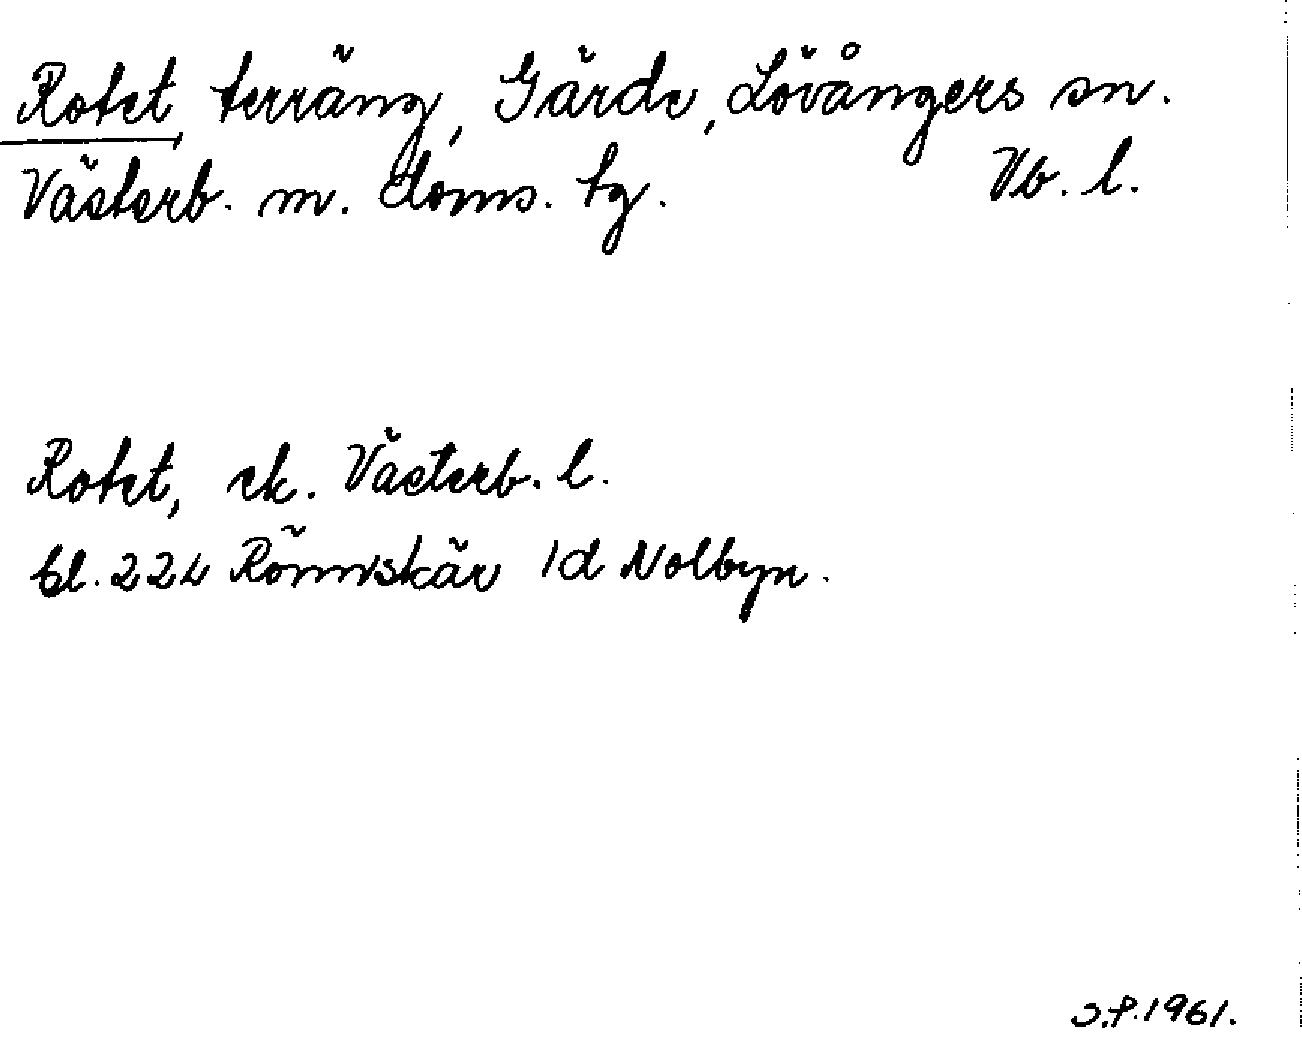 Rotet, terräng, Gärde, Lövångers sn.
Västerb. m. doms. tg. Vb. l.
Rotet, ek. Västerb. l.
bl. 224 Rönnskär 1d Nolbyn.
S.P. 1961.